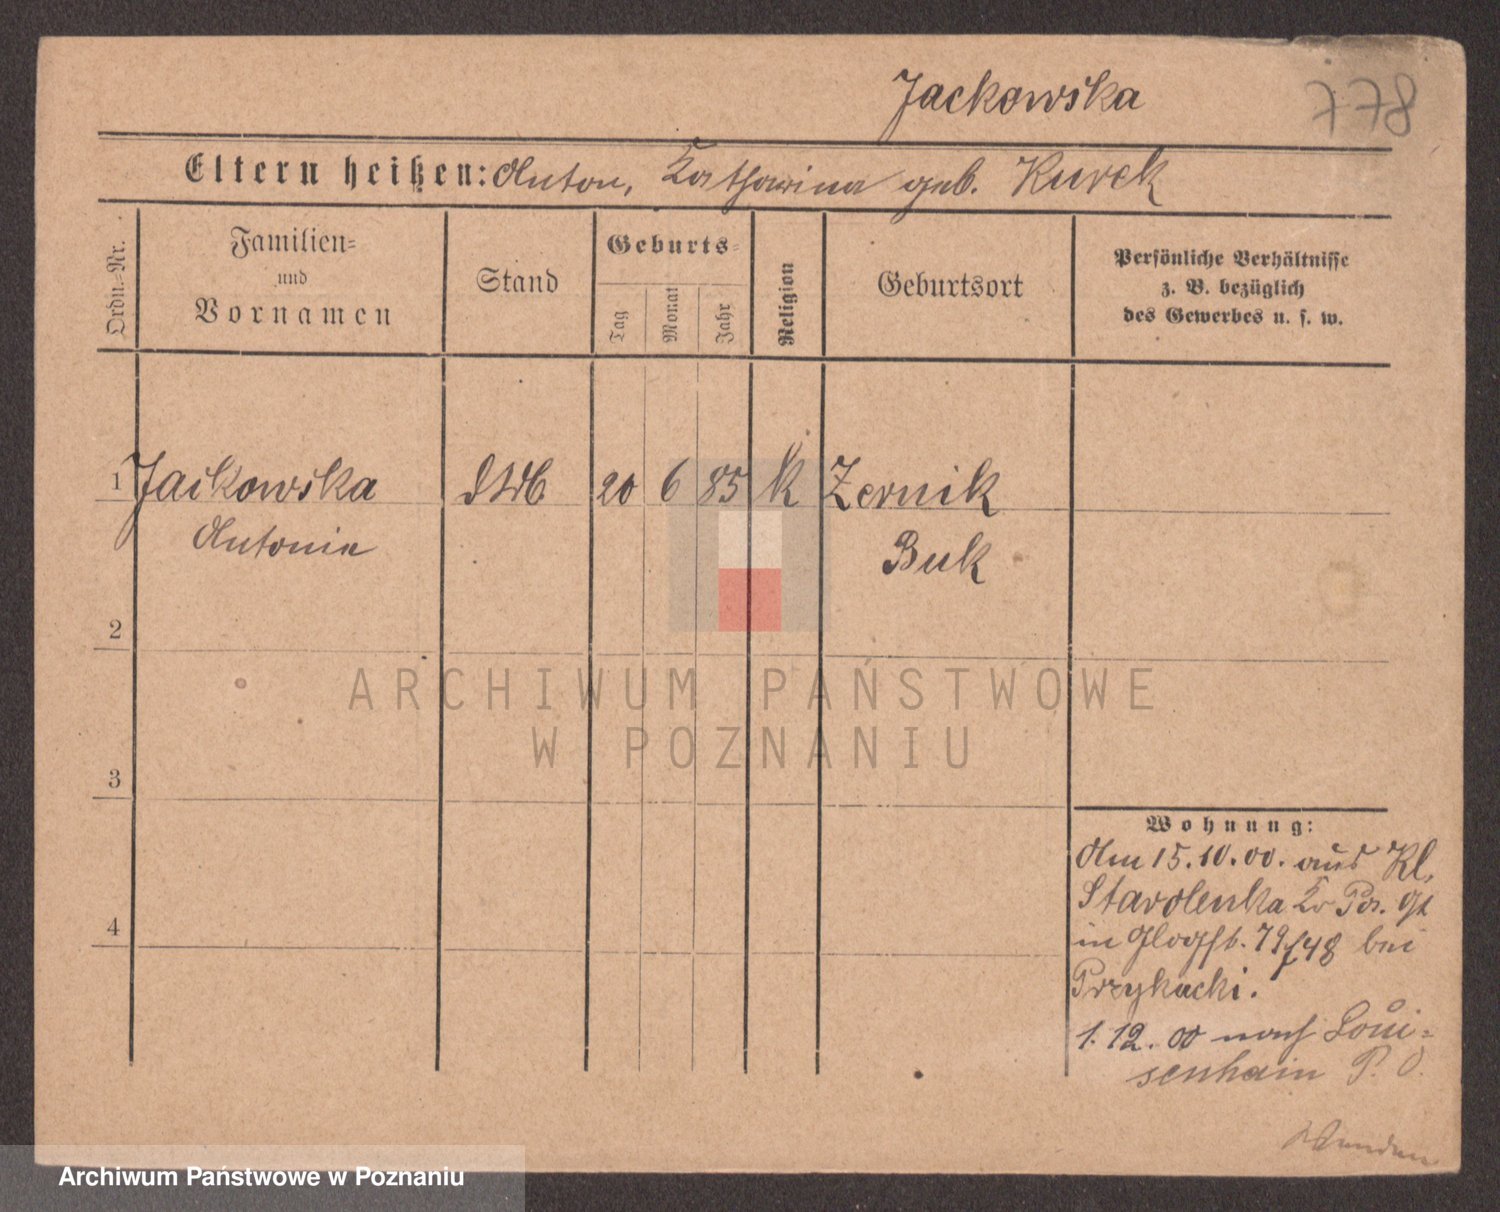 Jackowska
778
Eltern heißen: Anton, Katharina geb. Kurek
Ordn.-Nr.
Familien-
und
Vornamen
Stand
Geburts-
Tag
Monat
Jahr
Religion
Geburtsort
Persönliche Verhältnisse
z. B. bezüglich
des Gewerbes u. s. w.
1 Jackowska
Antonie
20 6 85 k Zernik
Buk
2
3
4
Wohnung:
Am 15.10.00. aus Kl.
Starolenka Kr Pos.
in Glogstr. 79/48 bei
Przykucki.
1.12.00 nach Loui-
senhain P. O.
ARCHIWUM PAŃSTWOWE
W POZNANIU
Archiwum Państwowe w Poznaniu